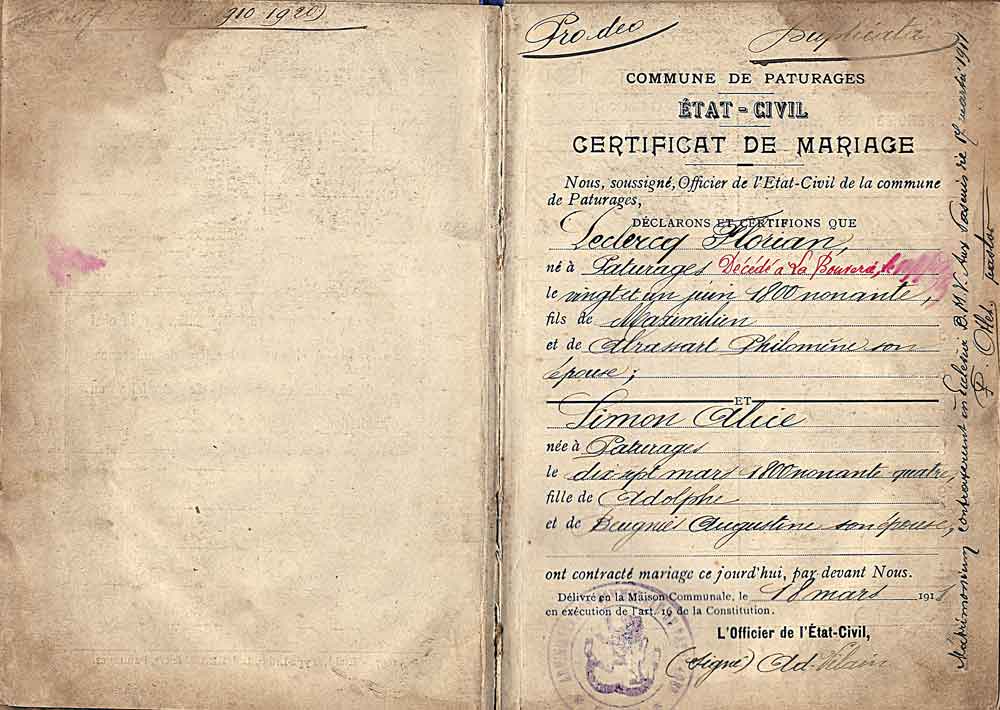 910-1920)
Pro deo
Duplicata
COMMUNE DE PATURAGES
ÉTAT-CIVIL
CERTIFICAT DE MARIAGE
Nous, soussigné, Officier de l'Etat-Civil de la commune
de Paturages,
DÉCLARONS ET CERTIFIONS QUE
Leclercq Florian,
né à Paturages Décédé à La Bouverie, le
le vingt et un juin 1800 nonante,
fils de Maximilien
et de Abrassart Philomène son
épouse;
ET
Simon Alice
née à Paturages
le dix sept mars 1800 nonante quatre,
fille de Adolphe
et de Beugnies Augustine son épouse,
ont contracté mariage ce jourd'hui, par devant Nous.
Délivré en la Maison Communale, le 18 mars 191
en exécution de l'art. 19 de la Constitution.
L'Officier de l'État-Civil,
(Signé) Ad. Vilain
Matrimonium contraxerunt in Ecclesia B.M.V. die 17 martii
pastor